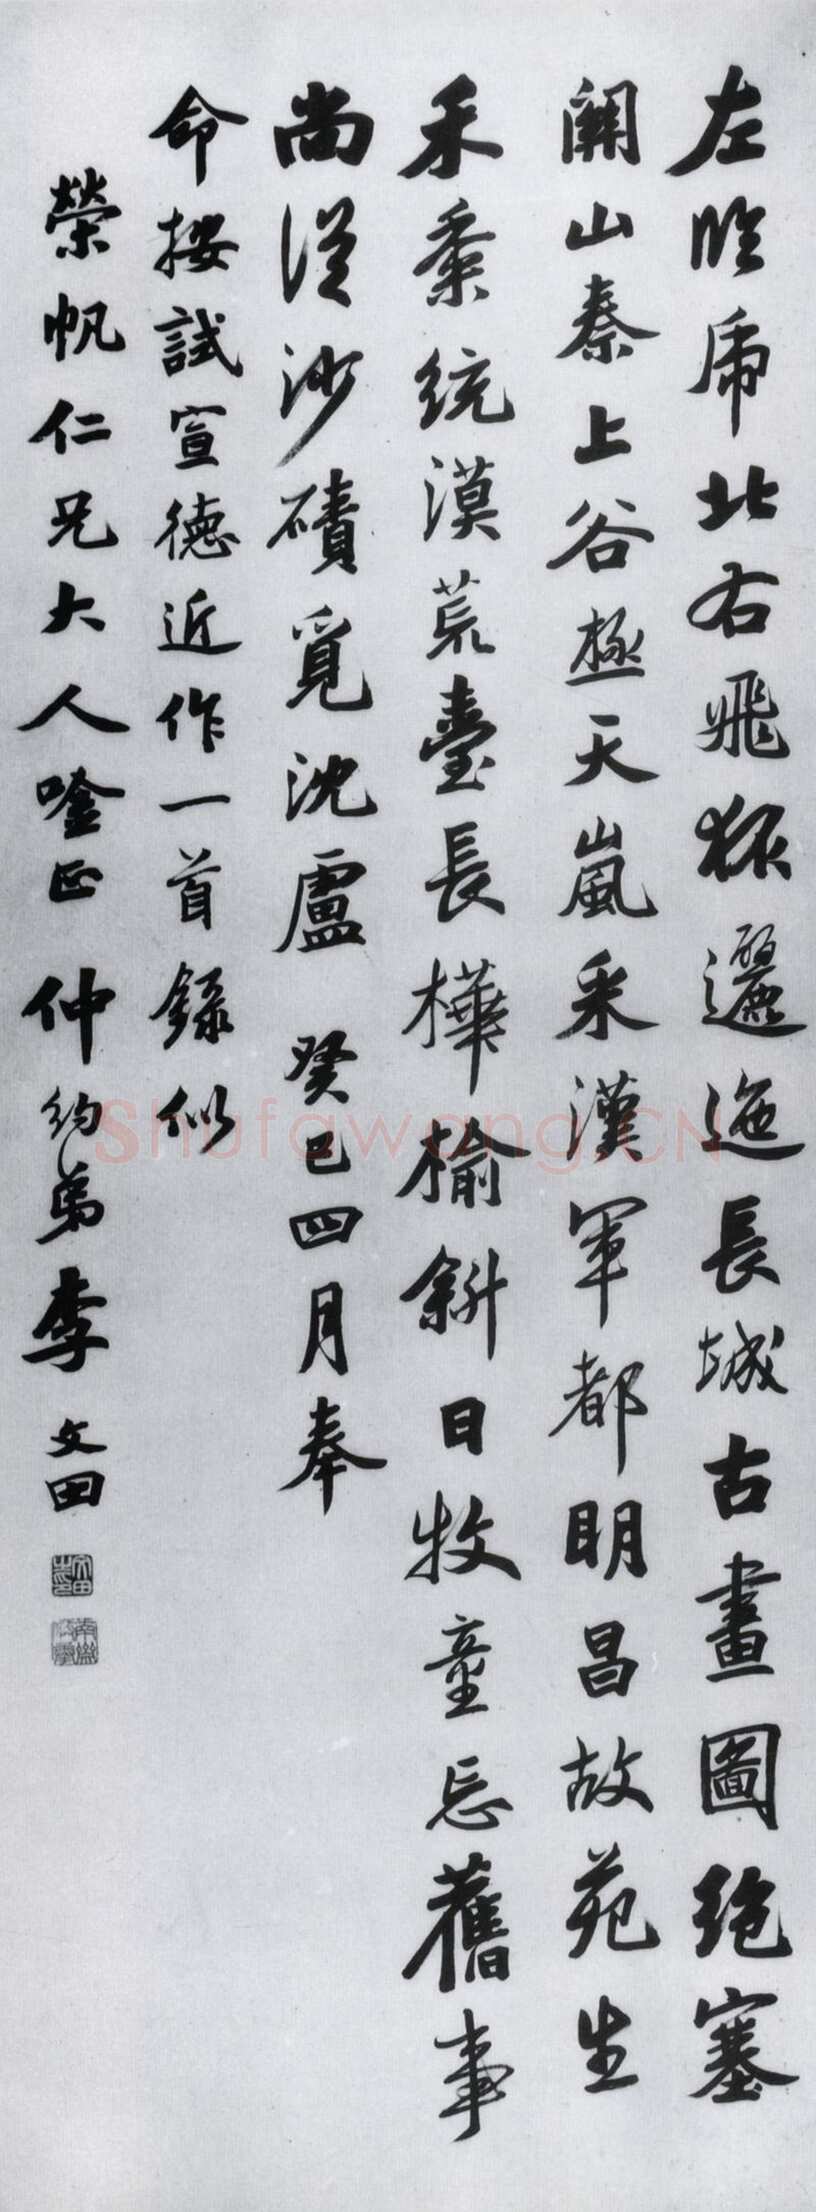 左虎北右飛狐邐迤長城古畫圖絶塞
關山秦上谷極天嵐采漢軍都明昌故苑生
禾黍統漠荒臺長樺榆斜日牧童忘舊事
尚從沙磧覓沈盧 癸巳四月奉
命按試宣德近作一首錄似
榮帆仁兄大人唫正 仲約弟李文田
Shufawang.CN